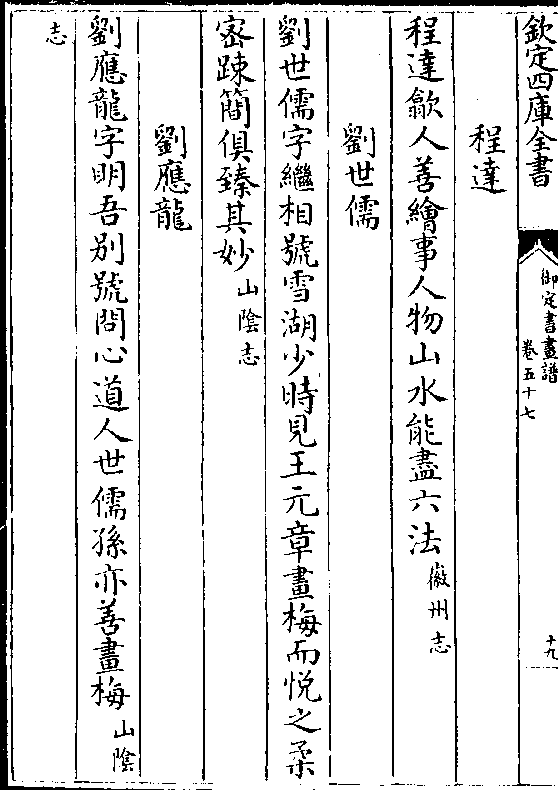 欽定四庫全書
御定書畫譜
卷五十七
十九
程達
程達歙人善繪事人物山水能盡六法徽州志
劉世儒
劉世儒字繼相號雪湖少時見王元章畫梅而悅之柔
宻踈簡俱臻其妙山陰志
劉應龍
劉應龍字明吾别號問心道人世儒孫亦善畫梅山隂
志